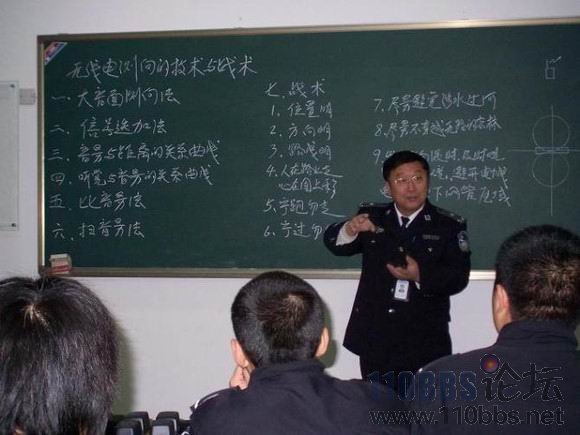 无线电测向的技术与战术
一、大音面测向法
二、信号迭加法
三、音量与距离的关系曲线
四、听觉与音量的关系曲线
五、比音量法
六、扫音量法
七、战术
1. 位置明
2. 方向明
3. 路线明
4. 人在路上走
心在图上移
5. 宁跑勿走
6. 宁过勿
7. 尽量避免涉水
8. 尽量不
9.
避开电线
下网管区域
110BBS论坛
www.110bbs.net